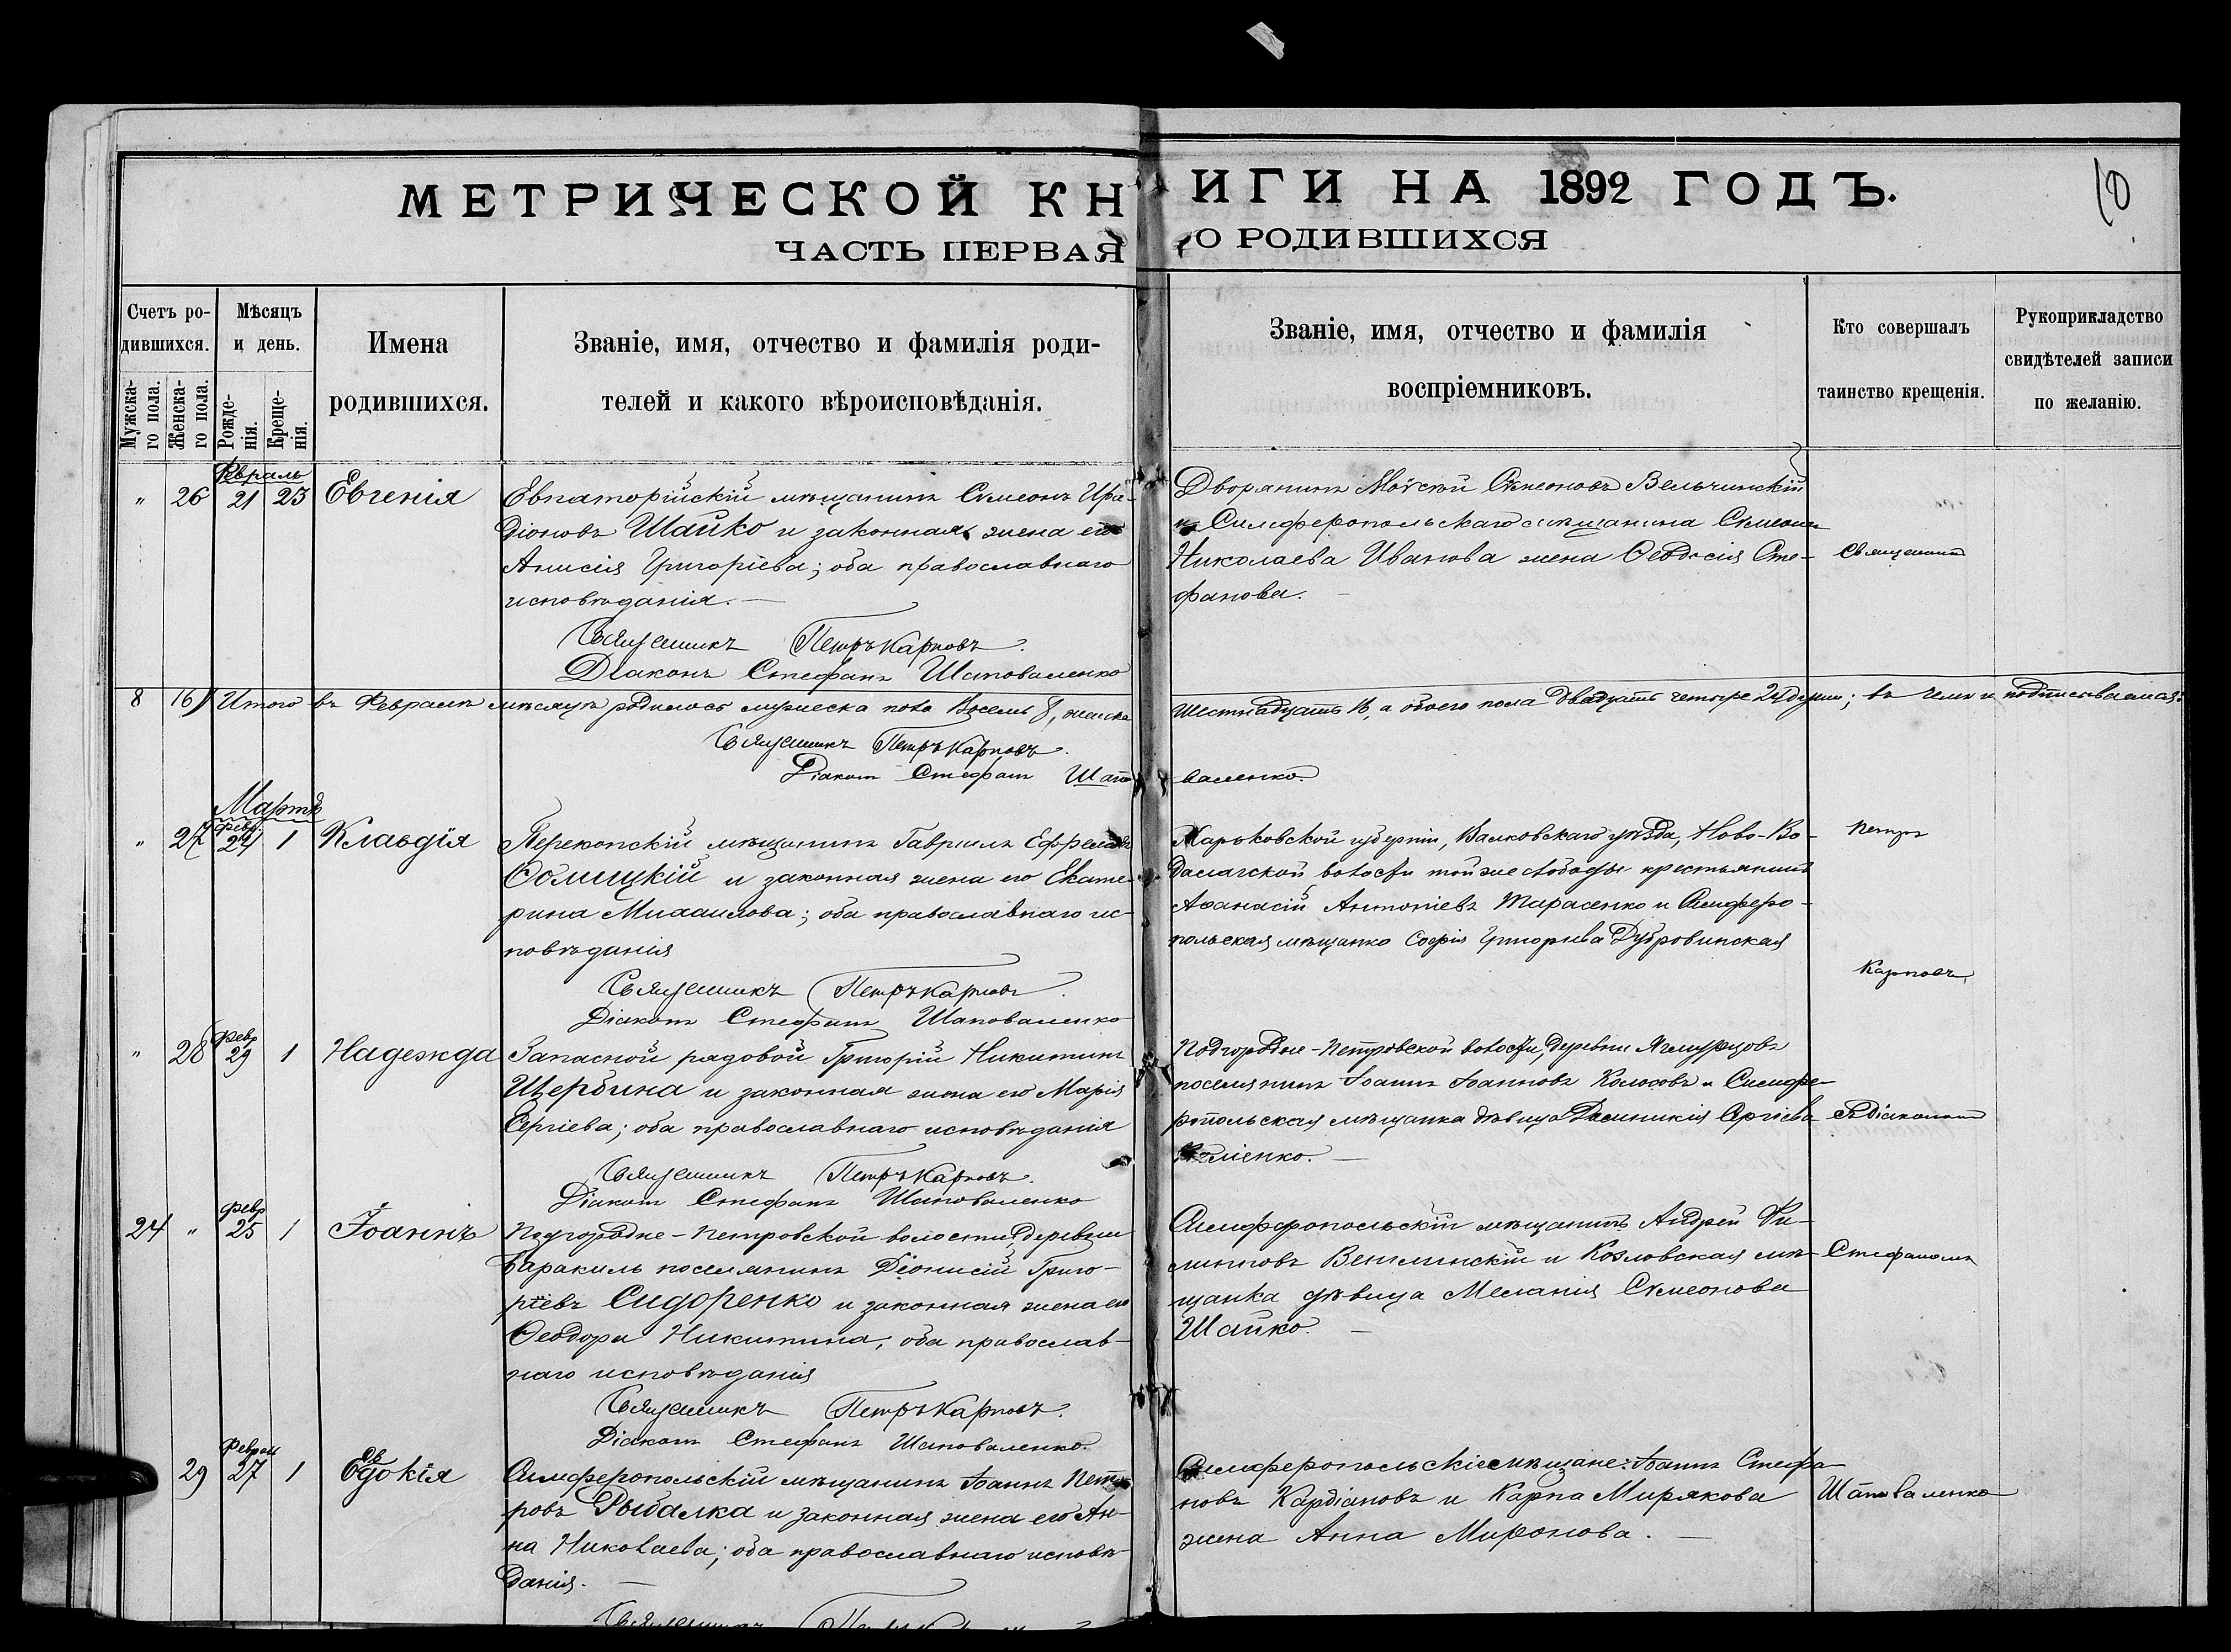 МЕТРИЧЕСКОЙ КНИГИ НА 1892 ГОДЪ.
10
ЧАСТЬ ПЕРВАЯ, О РОДИВШИХСЯ
Счетъ ро-
дившихся.
Мужска-
го пола.
Женска-
го пола.
Мѣсяцъ
и день.
Рожде-
нія.
Креще-
нія.
Имена
родившихся.
Званіе, имя, отчество и фамилія роди-
телей и какого вѣроисповѣданія.
Званіе, имя, отчество и фамилія
воспріемниковъ.
Кто совершалъ
таинство крещенія.
Рукоприкладство
свидѣтелей записи
по желанію.
Февраль
" 26 21 23 Евгенія
Евпаторійскій мѣщанинъ Сѵмеонъ Ира-
діоновъ Шайко и законная жена его
Анисія Григоріева; оба православнаго
исповѣданія. —
Священникъ Петръ Карповъ.
Діаконъ Стефанъ Шаповаленко
Дворянинъ Моѵсей Сѵмеоновъ Вельчинскій
и Симферопольскаго мѣщанина Сѵмеона
Николаева Иванова жена Ѳеодосія Сте-
фанова. —
Священникъ
8 16 Итого въ Февралѣ мѣсяцѣ родилось мужеска пола Восемь 8, женска Шестнадцать 16, а обоего пола двадцать четыре 24 души; въ чемъ и подписываемся:
Священникъ Петръ Карповъ.
Діаконъ Стефанъ Шаповаленко.
Мартъ
Февр.
" 27 24 1 Клавдія
Перекопскій мѣщанинъ Гавріилъ
Солицкій и законная жена его Екате-
рина Михаилова; оба православнаго ис-
повѣданія
Священникъ Петръ Карповъ.
Діаконъ Стефанъ Шаповаленко
Харьковской губерніи, Валковскаго уѣзда, Ново-Во-
долагской волости той же слободы крестьянинъ
Аѳанасій Антоніевъ Тарасенко и Симферо-
польская мѣщанка Софія Григорьева Дубровинская
Петръ
Карповъ
Февр
" 28 29 1 Надежда
Запасной рядовой Григорій Никитинъ
Щербина и законная жена его Марія
Сергіева; оба православнаго исповѣданія
Священникъ Петръ Карповъ.
Діаконъ Стефанъ Шаповаленко
Подгородне-Петровской волости, деревни
поселянинъ Іоаннъ Іоанновъ Колосовъ и Симфе-
ропольская мѣщанка дѣвица Домникія Сергіева
съ діакономъ
Февр
24 " 25 1 Іоаннъ
Подгородне-Петровской волости, деревни
Баракиль поселянинъ Діонисій Григо-
ріевъ Сидоренко и законная жена его
Ѳеодора Никитина; оба православ-
наго исповѣданія
Священникъ Петръ Карповъ.
Діаконъ Стефанъ Шаповаленко.
Симферопольскій мѣщанинъ Андрей Фи-
липповъ и Козловская мѣ-
щанка дѣвица Меланія Сѵмеонова
Шайко. —
Стефаномъ
Феврал
29 27 1 Евдокія
Симферопольскій мѣщанинъ Іоаннъ Пет-
ровъ Рыбалка и законная жена его Ан-
на Николаева; оба православнаго исповѣ-
данія. —
Симферопольскіе мѣщане: Іоаннъ Стефа-
новъ Кардіановъ и Карпа Мирякова
жена Анна Миронова. —
Шаповаленко
Священникъ